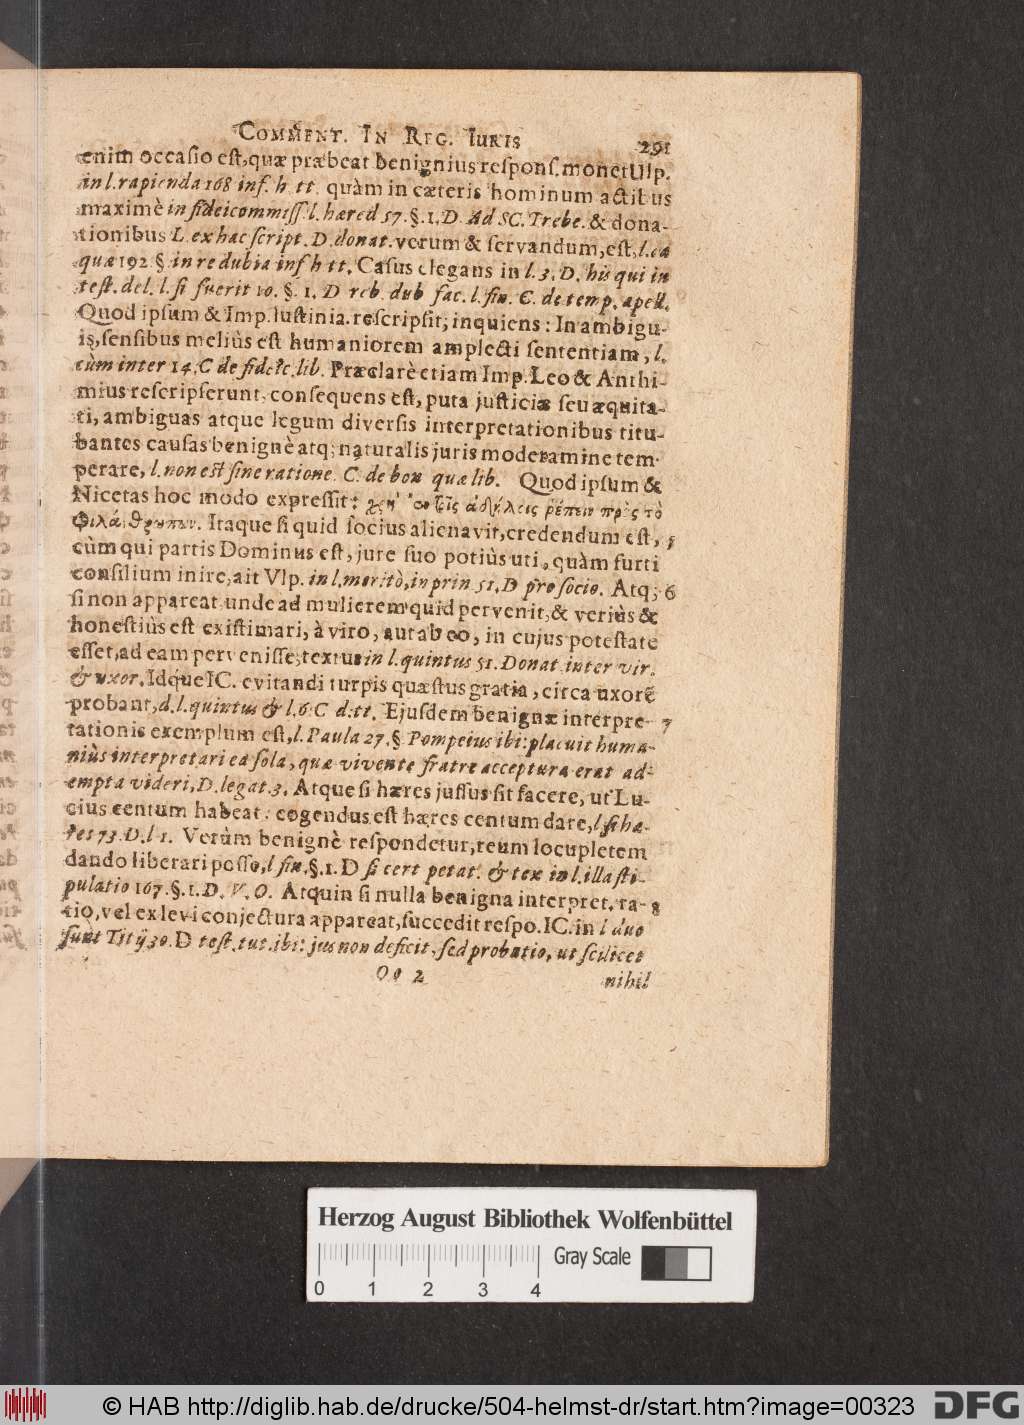 COMMENT. IN REG. IURIS 291
enim occasio est, quæ præbeat benignius respons. monet Ulp.
in l. rapienda 168 inf. h tt. quàm in cæteris hominum actibus
maximè in fideicommiss. l. hæred 57. §. 1. D. Ad SC. Trebe. & dona-
tionibus L. ex hac script. D. donat. verum & servandum, est, l. ea
quæ 192 § in re dubia inf h tt. Casus elegans in l. 3. D. his qui in
test. del. l. si fuerit 10. §. 1. D reb. dub fac. l. fin. C. de temp. apell.
Quod ipsum & Imp. Iustinia. rescripsit; inquiens: In ambigu-
is, sensibus meliùs est humaniorem amplecti sententiam, l.
cùm inter 14. C de fideic. lib. Præclarè etiam Imp. Leo & Anthi-
mius rescripserunt, consequens est, puta justiciæ seu æquita-
ti, ambiguas atque legum diversis interpretationibus titu-
bantes causas benignè atq; naturalis juris moderamine tem-
perare, l. non est sine ratione. C. de bon quæ lib. Quod ipsum &
Nicetas hoc modo expressit: χρὴ τοῖς ἀδήλεις ρέπειν πρὸς τὸ
Φιλάνθρωπον. Itaque si quid socius alienavit, credendum est, 5
cùm qui partis Dominus est, jure suo potiùs uti, quàm furti
consilium inire, ait Vlp. in l. meritò, in prin 51. D pro socio. Atq; 6
si non appareat unde ad mulierem quid pervenit, & veriùs &
honestiùs est existimari, à viro, aut ab eo, in cujus potestate
esset, ad eam pervenisse; textus in l. quintus 51. Donat. inter vir.
& uxor. Idque IC. evitandi turpis quæstus gratia, circa uxorē
probant, d. l. quintus & l. 6. C d. tt. Ejusdem benignæ interpre- 7
tationis exemplum est, l. Paula 27. § Pompeius ibi: placuit huma-
niùs interpretari ea sola, quæ vivente fratre acceptura erat ad-
empta videri, D. legat. 3. Atque si hæres jussus sit facere, ut Lu-
cius centum habeat: cogendus est hæres centum dare, l si hæ-
res 73. D. l 1. Verùm benignè respondetur, reum locupletem
dando liberari posse, l fin. §. 1. D si cert petat. & tex in l. illa sti-
pulatio 167. §. 1. D. V. O. Atquin si nulla benigna interpret. ra- 8
tio, vel ex levi conjectura appareat, succedit respo. IC. in l duo
sunt Titij 30. D test. tut. ibi: jus non deficit, sed probatio, ut scilicet
Oo 2 nihil
Herzog August Bibliothek Wolfenbüttel
Gray Scale
0 1 2 3 4
© HAB http://diglib.hab.de/drucke/504-helmst-dr/start.htm?image=00323 DFG